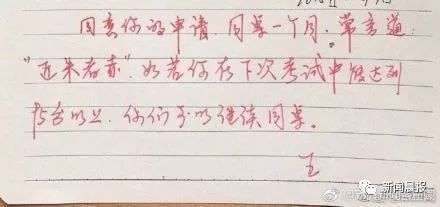 同意你的申请，同桌一个月。常言道：
“近朱者赤”，如若你在下次考试中能达到
75名以上，你们可以继续同桌。
王
新闻晨报